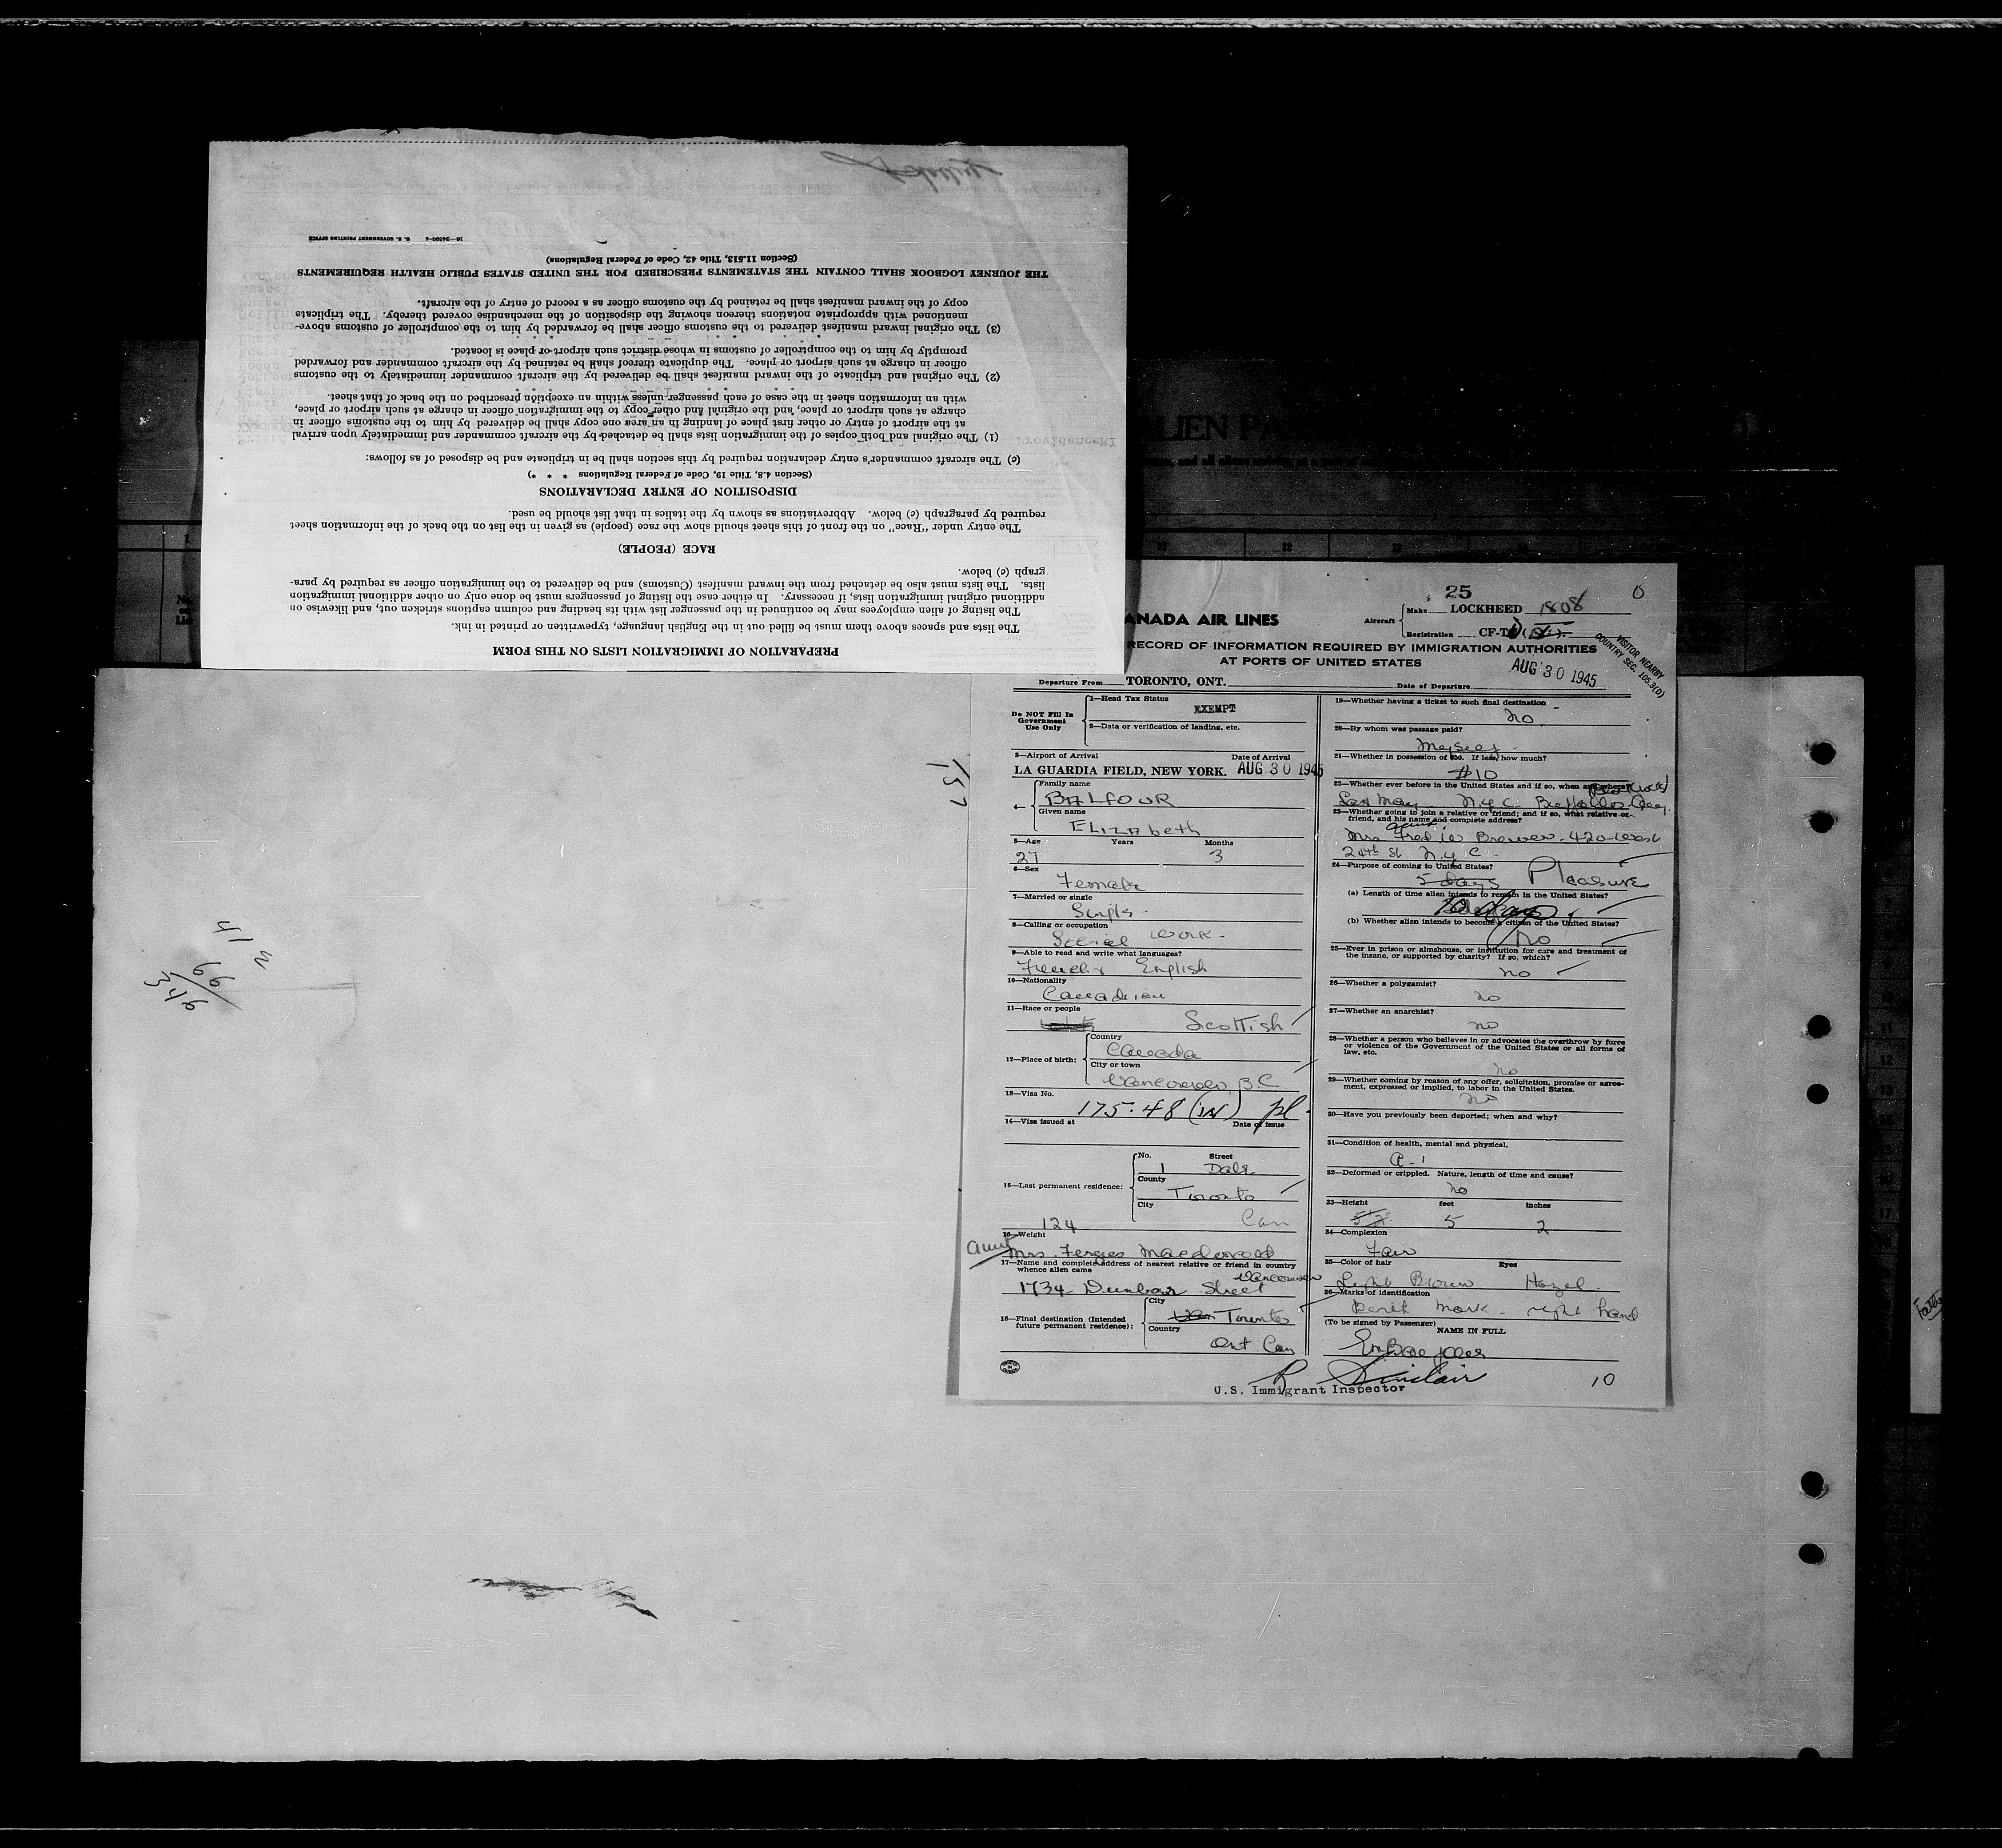 PREPARATION OF IMMIGRATION LISTS ON THIS FORM
The lists and spaces above them must be filled out in the English language, typewritten or printed in ink.
The listing of alien employees may be continued in the passenger list with its heading and column captions stricken out, and likewise on
additional original immigration lists, if necessary. In either case the listing of passengers must be done only on other additional immigration
lists. The lists must also be detached from the inward manifest (Customs) and be delivered to the immigration officer as required by para-
graph (c) below.
RACE (PEOPLE)
The entry under "Race" on the front of this sheet should show the race (people) as given in the list on the back of the information sheet
required by paragraph (c) below. Abbreviations as shown by the italics in that list should be used.
DISPOSITION OF ENTRY DECLARATIONS
(Section 4.8, Title 19, Code of Federal Regulations * * *)
(c) The aircraft commander's entry declaration required by this section shall be in triplicate and be disposed of as follows:
(1) The original and both copies of the immigration lists shall be detached by the aircraft commander and immediately upon arrival
at the airport of entry or other first place of landing in an area one copy shall be delivered by him to the customs officer in
charge at such airport or place, and the original and other copy to the immigration officer in charge at such airport or place,
with an information sheet in the case of each passenger unless within an exception prescribed on the back of that sheet.
(2) The original and triplicate of the inward manifest shall be delivered by the aircraft commander immediately to the customs
officer in charge at such airport or place. The duplicate thereof shall be retained by the aircraft commander and forwarded
promptly by him to the comptroller of customs in whose district such airport or place is located.
(3) The original inward manifest delivered to the customs officer shall be forwarded by him to the comptroller of customs above-
mentioned with appropriate notations thereon showing the disposition of the merchandise covered thereby. The triplicate
copy of the inward manifest shall be retained by the customs officer as a record of entry of the aircraft.
THE JOURNEY LOGBOOK SHALL CONTAIN THE STATEMENTS PRESCRIBED FOR THE UNITED STATES PUBLIC HEALTH REQUIREMENTS
(Section 11.513, Title 42, Code of Federal Regulations)
U. S. GOVERNMENT PRINTING OFFICE
ALIEN PA
25
ANADA AIR LINES
Aircraft
Make LOCKHEED 1808
Registration CF-T
RECORD OF INFORMATION REQUIRED BY IMMIGRATION AUTHORITIES
AT PORTS OF UNITED STATES
VISITOR NEARBY
COUNTRY SEC. 105.3(D)
AUG 30 1945
Departure From TORONTO, ONT.
Date of Departure
Do NOT Fill In Government Use Only
1—Head Tax Status
EXEMPT
2—Data or verification of landing, etc.
3—Airport of Arrival Date of Arrival
LA GUARDIA FIELD, NEW YORK. AUG 30 1945
157
4—
Family name
BALFOUR
Given name
ELIZAbeth
5—Age Years Months
27 3
6—Sex
Female
7—Married or single
Single
8—Calling or occupation
Social Work
9—Able to read and write what languages?
French English
10—Nationality
Canadian
11—Race or people
Scottish
12—Place of birth:
Country
Canada
City or town
Vancouver BC
13—Visa No.
175.48 (IN) pl.
14—Visa issued at Date of issue
15—Last permanent residence:
No. Street
1 Dale
County
Toronto
City
Can
124
16—Weight
aunt
Mrs. Fergus
17—Name and complete address of nearest relative or friend in country
whence alien came
1734 Dunbar Street Vancouver
18—Final destination (Intended
future permanent residence):
City
Toronto
Country
Ont Can
19—Whether having a ticket to such final destination
no
20—By whom was passage paid?
Myself
21—Whether in possession of $50. If less, how much?
$10
22—Whether ever before in the United States and if so, when and where?
Last May N.Y.C.
23—Whether going to join a relative or friend; and if so, what relative or
friend, and his name and complete address?
aunt
Mrs Fred W Brewer - 420 West
24th St. N.Y.C.
24—Purpose of coming to United States?
5 days Pleasure
(a) Length of time alien intends to remain in the United States?
(b) Whether alien intends to become a citizen of the United States?
No
25—Ever in prison or almshouse, or institution for care and treatment of
the insane, or supported by charity? If so, which?
no
26—Whether a polygamist?
no
27—Whether an anarchist?
no
28—Whether a person who believes in or advocates the overthrow by force
or violence of the Government of the United States or all forms of
law, etc.
no
29—Whether coming by reason of any offer, solicitation, promise or agree-
ment, expressed or implied, to labor in the United States.
no
30—Have you previously been deported; when and why?
31—Condition of health, mental and physical.
A-1
32—Deformed or crippled. Nature, length of time and cause?
no
33—Height feet inches
5 2
34—Complexion
Fair
35—Color of hair Eyes
Light Brown Hazel
36—Marks of identification
Birth Mark - right hand
(To be signed by Passenger)
NAME IN FULL
R Sinclair
U.S. Immigrant Inspector
10